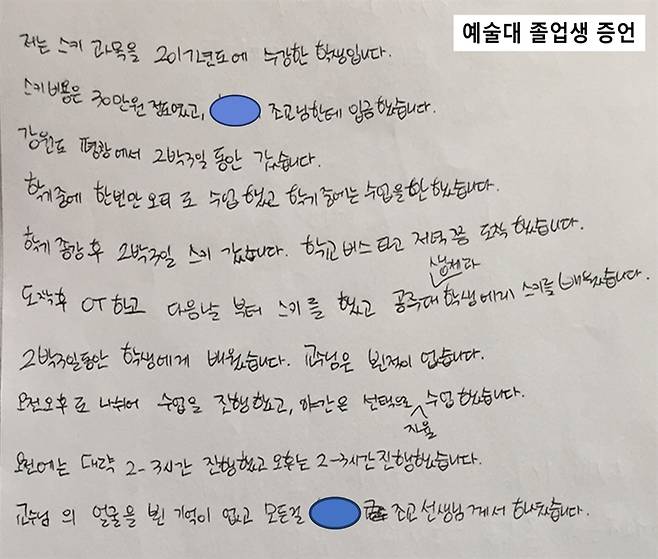 예술대 졸업생 증언
저는 스키 과목을 2017년도에 수강한 학생입니다.
스키비용은 30만원 정도였고, 조교님한테 입금했습니다.
강원도 평창에서 2박3일 동안 갔습니다.
학기중에 한번만 오티로 수업 했고 학기 중에는 수업을 안 했습니다.
학기 종강 후 2박3일 스키 갔습니다. 학교 버스 타고 저녁쯤 도착 했습니다.
생체과
도착후 OT 하고 다음날 부터 스키를 했고 공주대 학생에게 스키를 배웠습니다.
2박3일동안 학생에게 배웠습니다. 교수님은 뵌적이 없습니다.
오전오후로 나뉘어 수업을 진행했고, 야간은 선택으로 수업했습니다.
자율
오전에는 대략 2-3시간 진행했고 오후는 2-3시간 진행했습니다.
교수님의 얼굴을 뵌 기억이 없고 모든걸 조교선생님께서 하셨습니다.